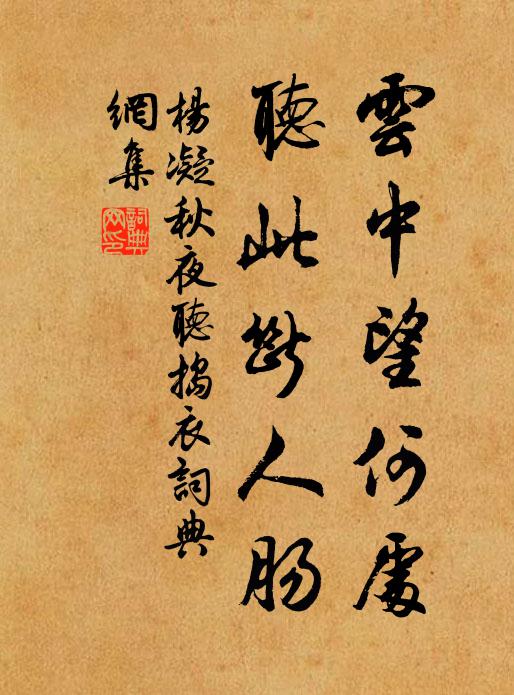 雲中望何處
聽此斷人腸
楊凝秋夜聽搗衣詞典
網集
詞典
網印